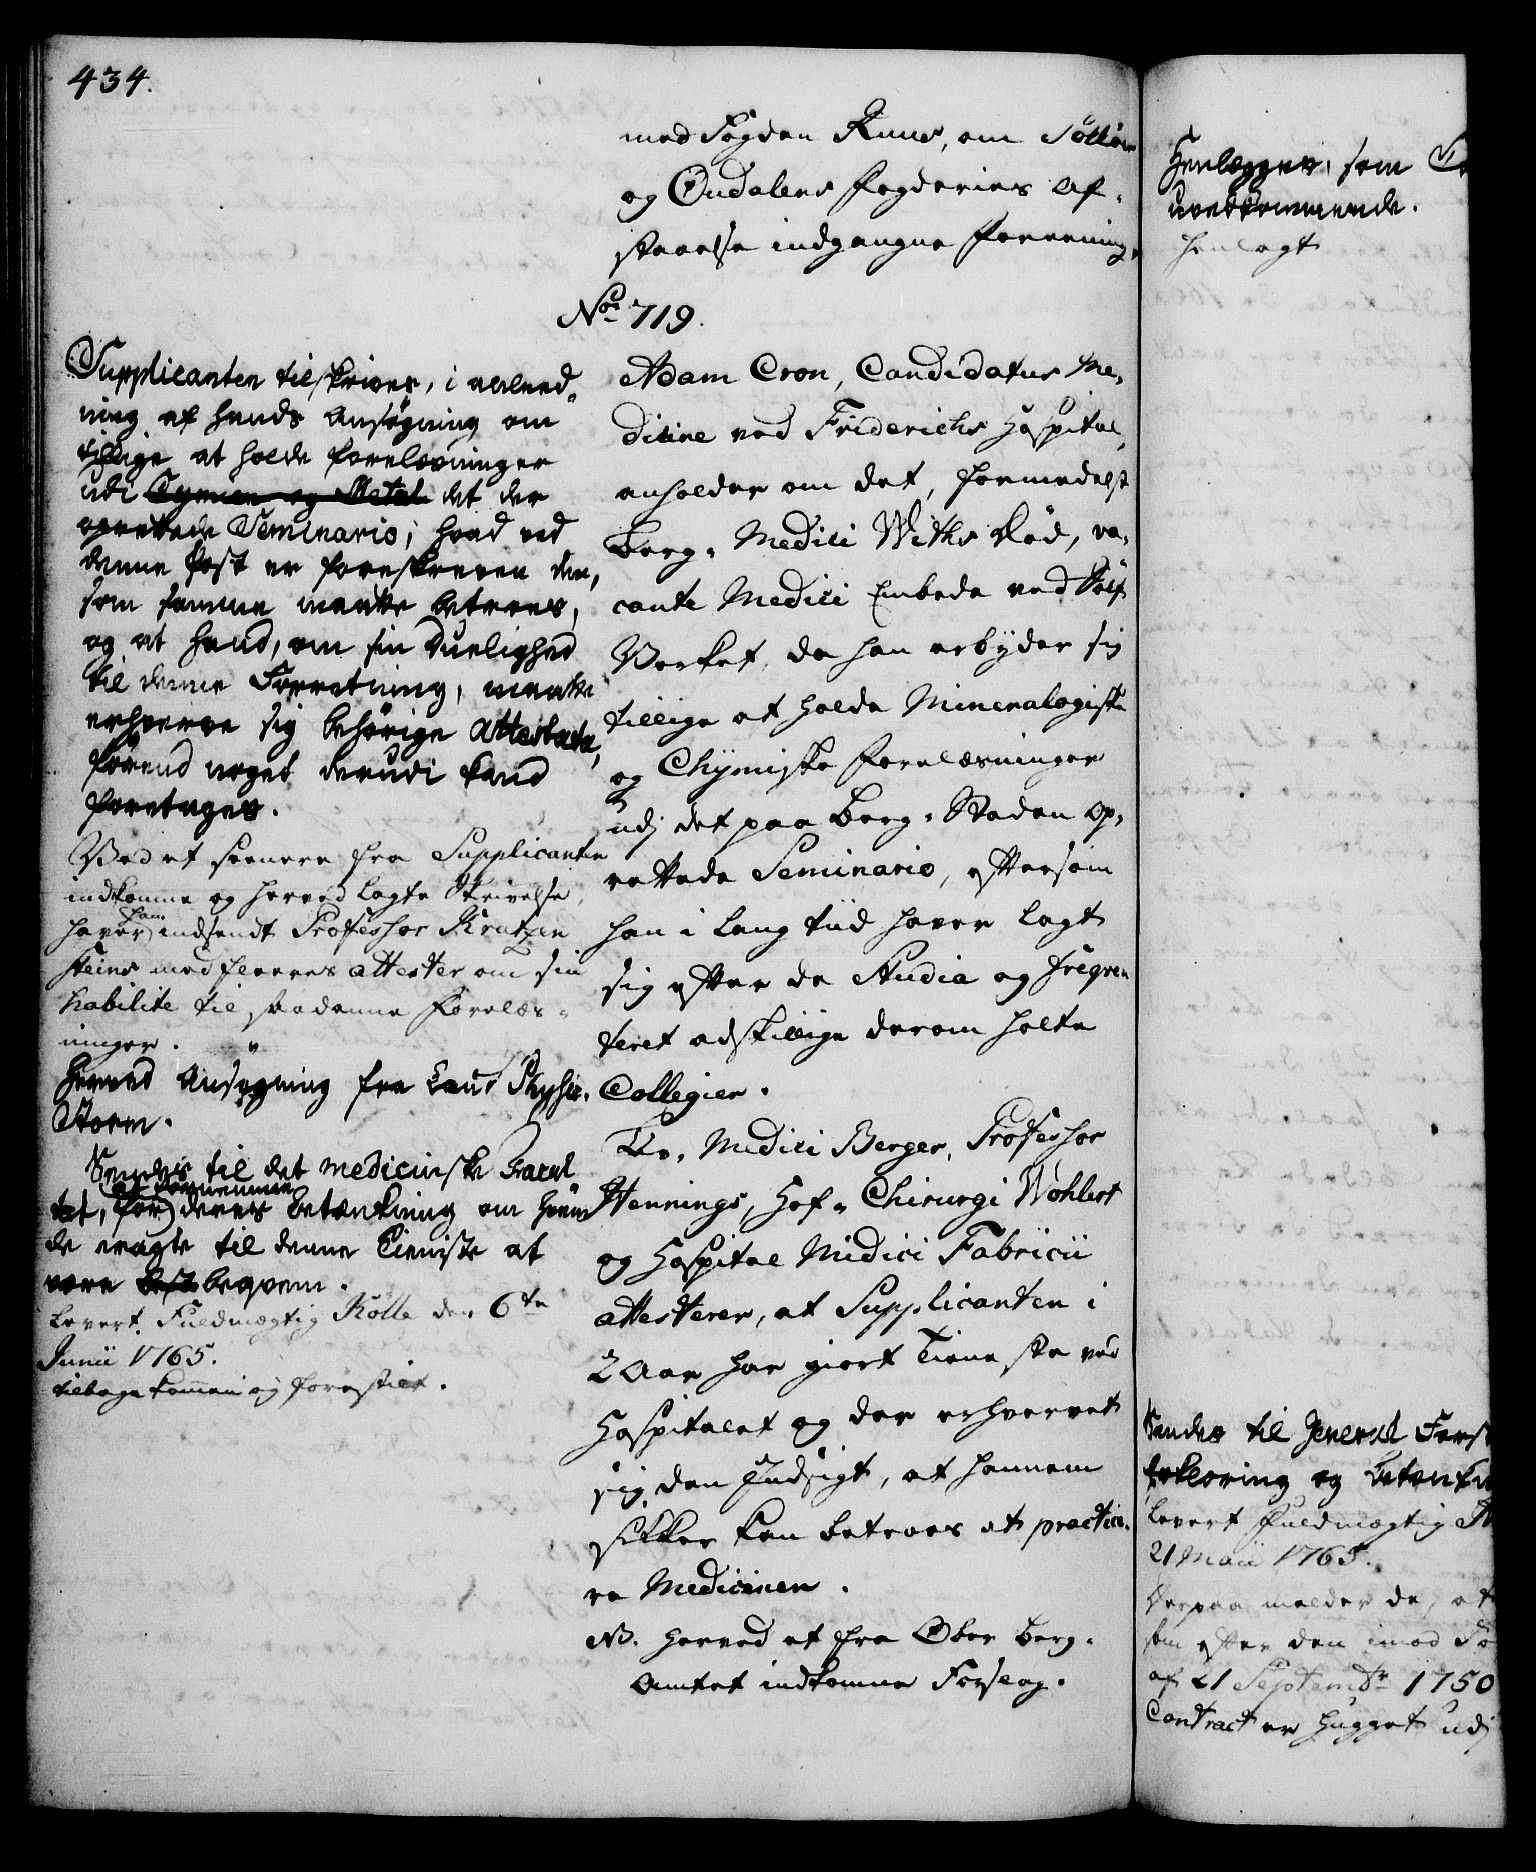 434.
med Fogden Ruus, om Solløer
og Oudalens Fogderies Af-
staaelse indgangne Foreening.
No. 719.
Supplicanten tilskrives, i anled-
ning af hands Ansøgning om
tillige at holde forelæsninger
udi det der
oprettede Seminario; hvad ved
denne Post er foreskreven den,
som samme maatte betroes,
og at hand, om sin Duelighed
til denne Forretning, maatte
erhverve sig behørige Attestata,
førend noget derudi kand
foretages.
Ved et seenere fra Supplicanten
indkomne og herved lagte Skrivelse,
haver han indsendt Professor Kratzen
steins med fleeres attester om sin
habilite til saadanne Forelæs-
ninger.
Herved Ansøgning fra Land Physic.
Storm.
Sendes til det medicinske Facul
tet, for at fornemme deres betænkning om hvem
de eragte til denne Tieniste at
være best beqvem.
Levert Fuldmægtig Rolle den 6te
Junii 1765.
tilbage kommen og forestilt.
Adam Cron, Candidatus Me-
dicine ved Friderichs Hospital,
anholder om det, formedelst
Berg-Medici Withs Død, va-
cante Medici Embede ved Sølf-
Verket, da han erbyder sig
tillige at holde Mineralogiske
og Chymiske Forelæsninger
udj det paa Berg-Staden op-
rettede Seminario, eftersom
han i lang tiid haver lagt
sig efter de Studia og freqven
teret adskillige derom holte
Collegier.
Medici Berger, Professor
Hennings, Hof-Chirurgi Wohlert
og Hospital Medici Fabricii
attesterer, at Supplicanten i
2 Aar har giort Tieneste ved
Hospitalet og der erhvervet
sig den Indsigt, at hannem
sikker kan betroes at practice-
re Medicinen.
NB. herved et fra Ober Berg-
Amtet indkomne Forslag.
Henlegges, som
uvedkommende.
henlagt
Sendes til General Forst
Erklæring og betænkn
Levert Fuldmægtig
21 Maii 1765.
Derpaa melder de, at
som efter den imod
af 21 Septembr 1750
Contract er hugget udj